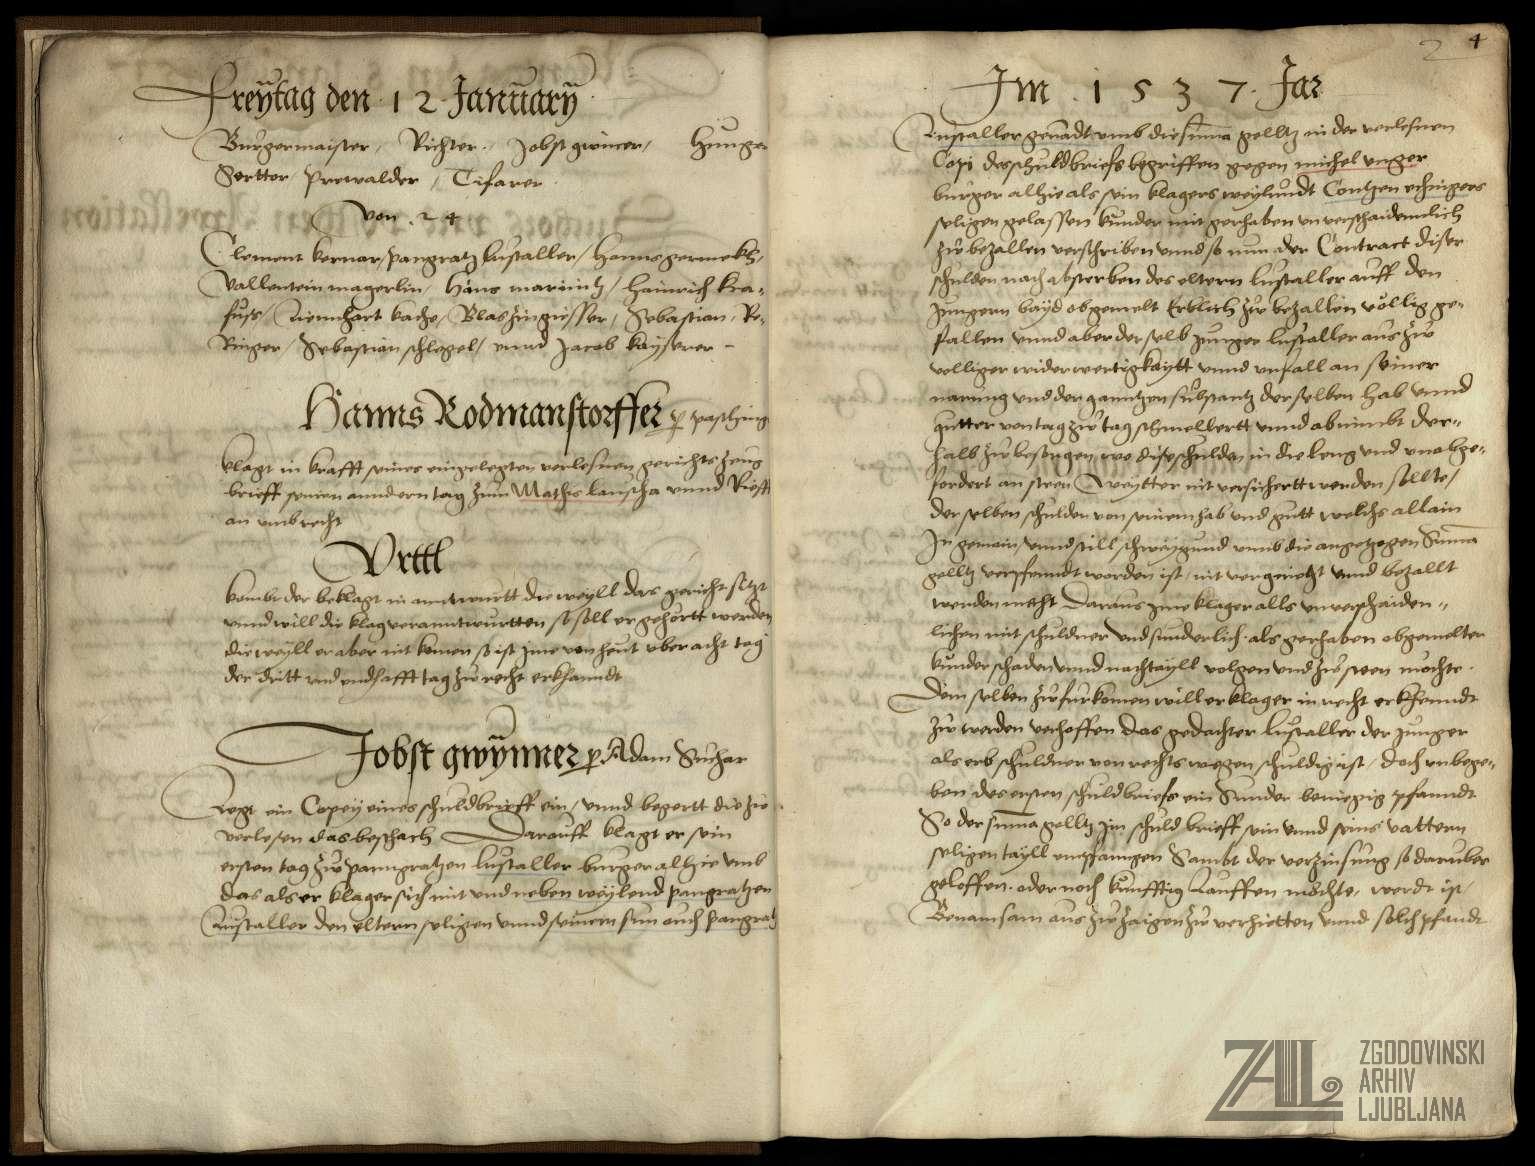 Freÿtag den 12 Januarÿ
Burgermaister, Richter, Jobst gwinner, Hunger
Sertter, Prewalder, Tifarer
Von .24
Clement kernar, pangratz lustaller, Hanns
Vallentein magerlin, Hanns, Hainrich kra-
fuss, Liennhart, Blas Zingiesser, Sebastian, Re-
Ringer, Sebastian schlegel, vnnd Jacob kayserer
Hanns Rodmanstorffer p pasching
klagt in krafft seines eingelegten verlesnen gerichts zeug
brieff seinen anndern tag zum Mathis lauscha vnnd Riefft
an vmb recht
Vrttl
kombt der beklagt in anndtwurtt dieweyll das gericht sitzt
vnnd will die klag veranntwurtten so soll er gehörtt werden
dieweyll er aber nit komen so ist jme von heut vber acht tag
der dritt vnd endhafft tag zw recht erkhanndt
Jobst gwÿnner p Adam Suchar
Legt ein Copey eines schuldbrieff ein, vnnd begertt die zu
verlesen das beschach Darauff klagt er sein
ersten tag zw panngratzen lustaller burger alhie vmb
das als er klager sich mit vnd neben weylend pangratzen
Lustaller den eltern seligen vnnd seinem sun auch pangratz
4
Im .1537. Jar
Lustaller genadt vmb die suma gelltz in der verlesnen
Copi des schuldbriefs begriffen gegen michel vnger
burger alhie als sein klagers weylundt Contzen
seligen gelassen kunder mit gerhaben vnuerschaidennlich
zw bezallen verschriben vnnd so nun der Contract diser
schulden nach absterben des eltern lustaller auff den
Jungern bayd obgemelt Erblich zw bezallen völlig ge-
fallen vnnd aber derselb junger lustaller aus zw
velliger widerwertigkaytt vnnd vnfall an seiner
narung vnd der ganntzen substantz derselben hab vnnd
guetter von tag zw tag schmellertt vnnd abnimbt der-
halb zw besorgen wo dise schulden in die leng vnd vnabge-
fordert an steen Weytter nit versichertt werden sollte,
derselben schulden von seinem hab vnd gutt welchs allain
In gemain, vnnd still schweygund vmb die angetzogen Suma
gelltz verpfenndt worden ist, nit vergnuegt vnnd bezallt
werden mecht Daraus jme klager alls vnuerschaiden-
lichen mit schuldner vnd sunderlich als gerhaben obgemelter
kunder schaden vnnd nachtayll volgen vnd zw steen mochte.
Dem selben zwfurkomen will er klager in recht erkhenndt
zw werden verhoffen das gedachter lustaller der junger
als erbschuldner von rechts wegen schuldig ist, doch vnbege-
ben des ersten schuldbriefs ein Sunder benuegig pfanndt
So der suma gelltz jm schuldbrieff sein vnnd seins vattern
seligen tayll empfanngen Sambt der verzinsung so daruber
geloffen oder noch kunfftig Lauffen möchte, werdt ist,
Benamsam aus zw zaigen zw verhietten vnnd solch pfandt
ZAL ZGODOVINSKI
ARHIV
LJUBLJANA